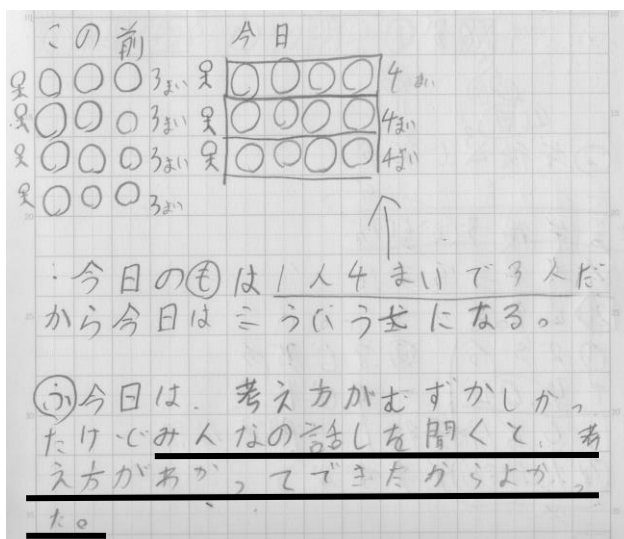 この前 今日
3まい 4まい
3まい 4まい
3まい 4まい
3まい
：今日のもは1人4まいで3人だ
から今日はこういう式になる。
ふ今日は、考え方がむずかしかっ
たけどみんなの話しを聞くと、考
え方がわかってできたからよかっ
た。